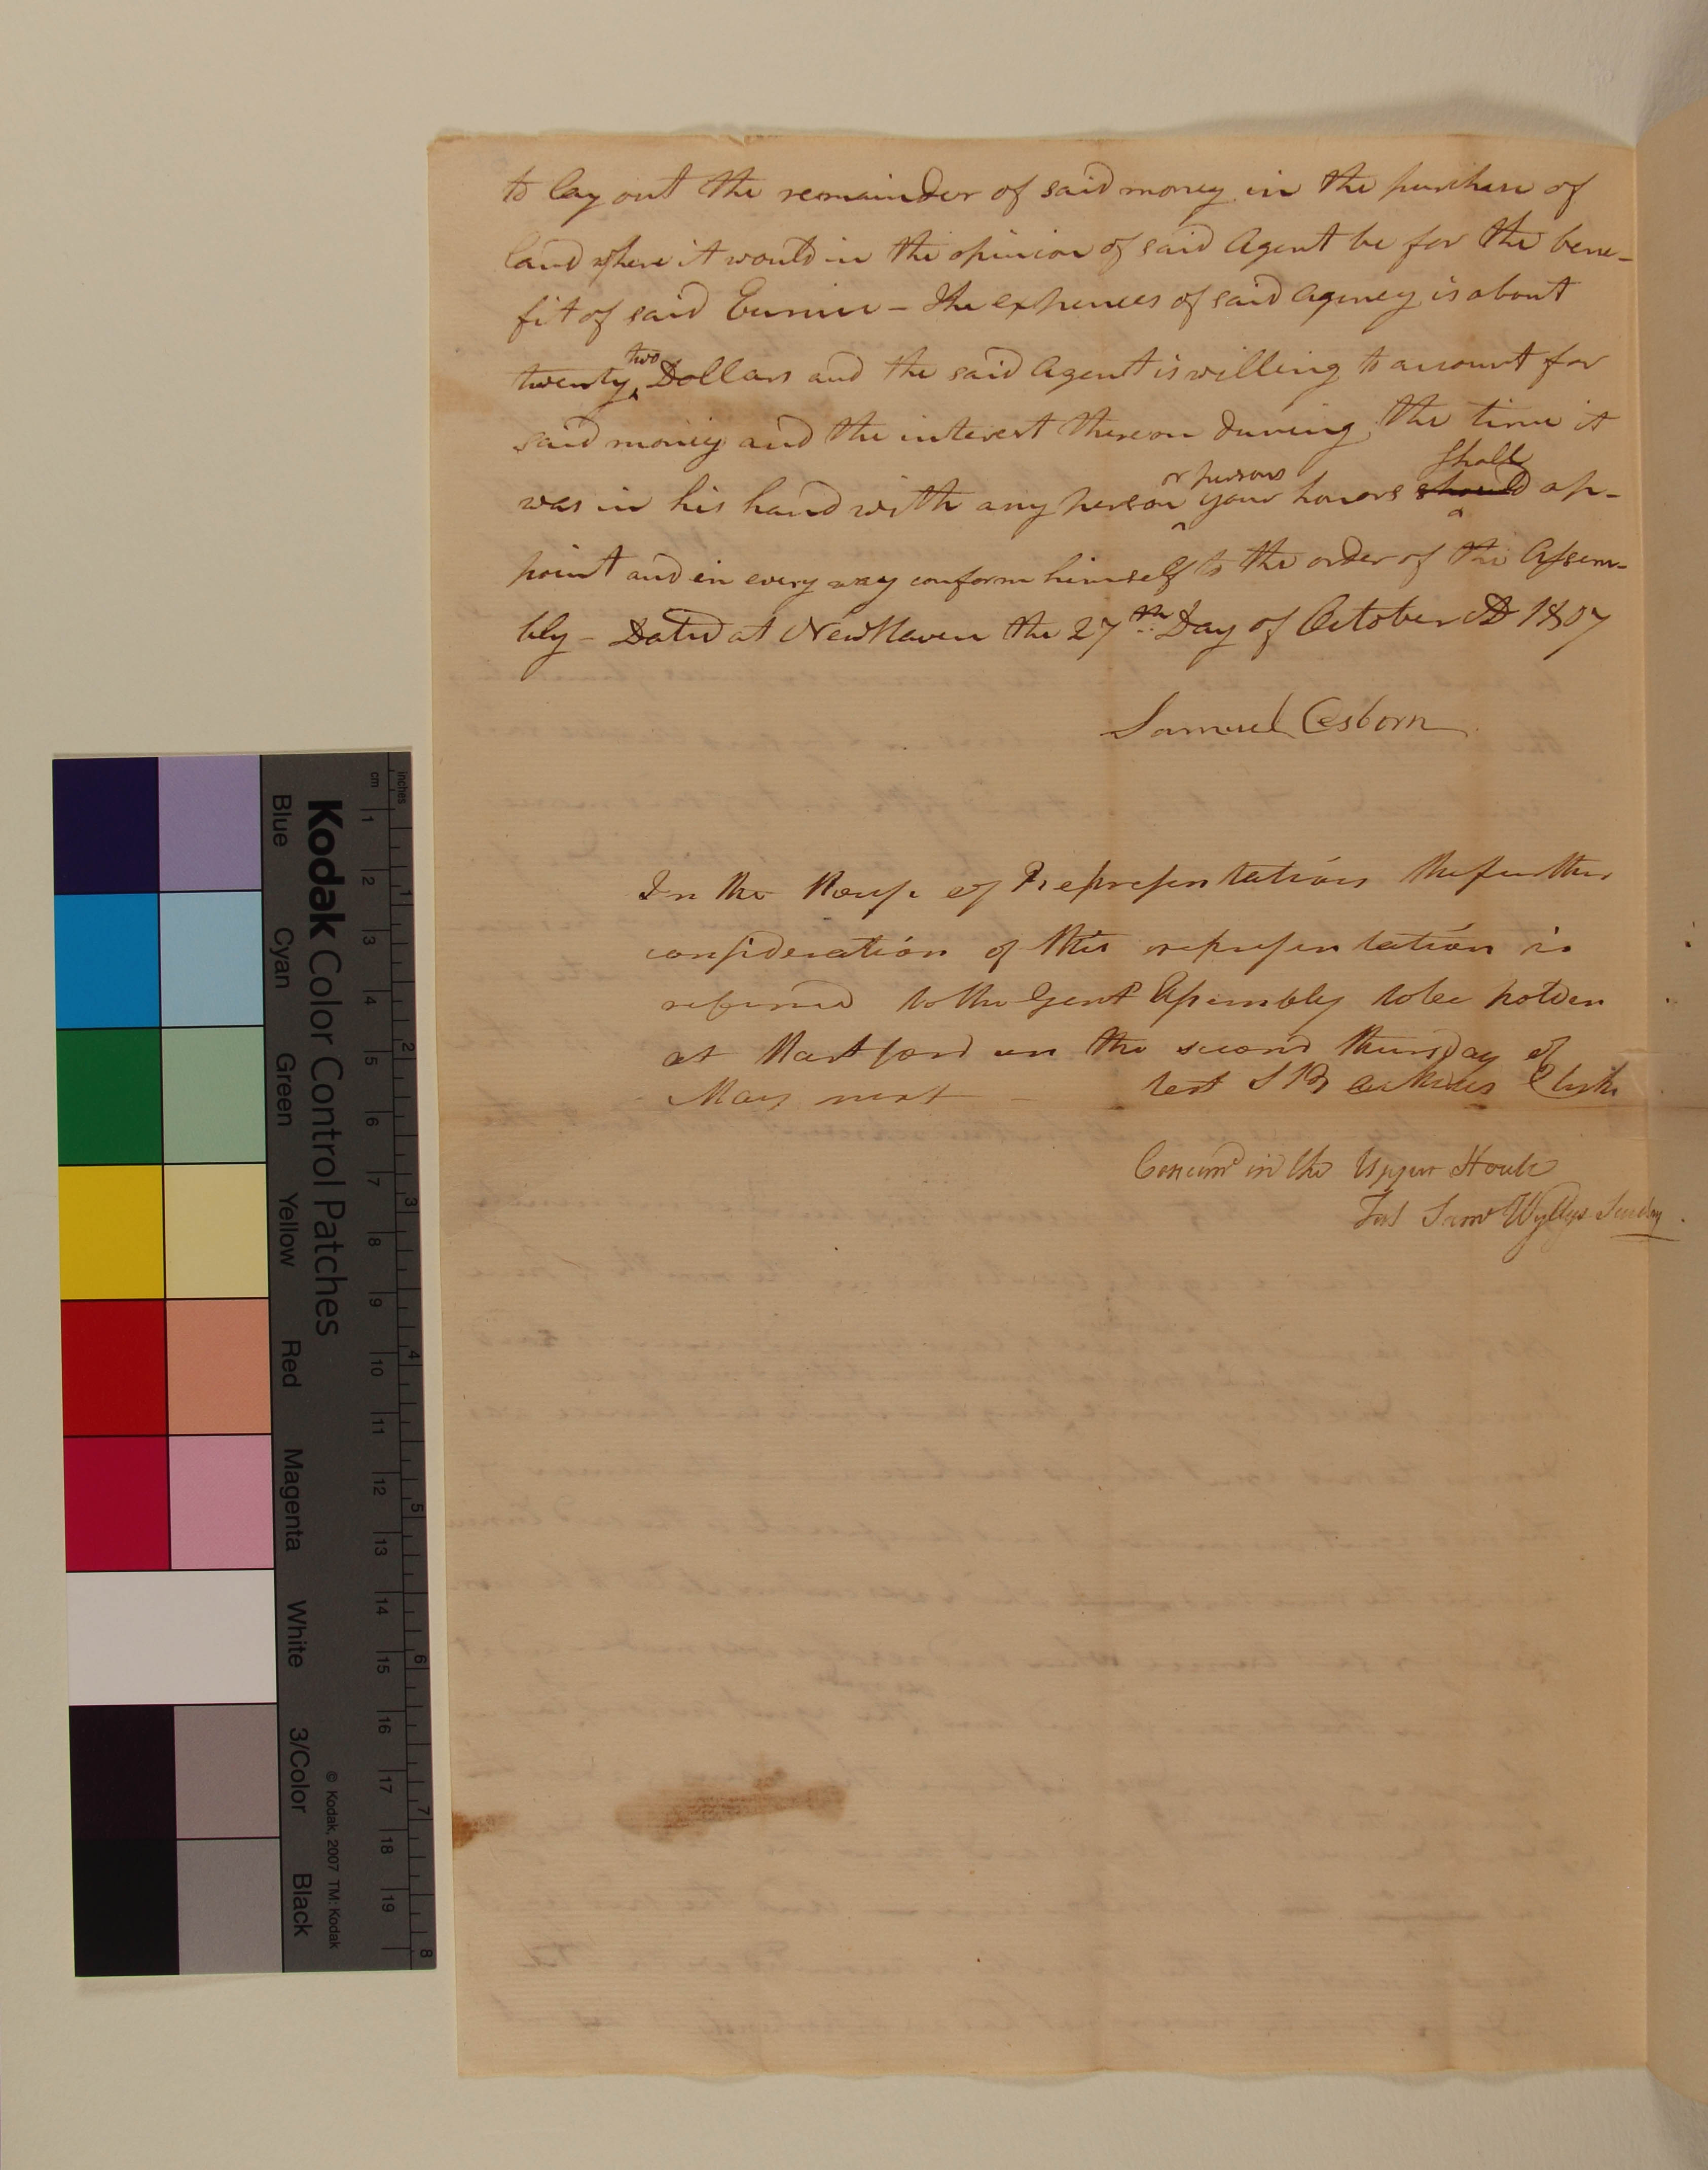 to lay out the remainder of said money in the purchase of
land where it would in the opinion of said Agent be for the bene-
fit of said Eunice - The expences of said agency is about
twenty two Dollars and the said Agent is willing to account for
said money and the interest thereon during the time it
was in his hand with any person or persons your honors should shall ap-
point and in every way conform himself to the order of the Assem-
bly - Dated at New Haven the 27th Day of October AD 1807
Samuel Osborn
In the House of Representatives the further
consideration of this representation is
referred to the Genl Assembly to be holden
at Hartford on the second Thursday of
May next -
test Clerk
Concurrd in the Upper House
Test Saml Wyllys Secrety
Kodak Color Control Patches
Blue Cyan Green Yellow Red Magenta White 3/Color Black
© Kodak, 2007 TM: Kodak
cm 1 2 3 4 5 6 7 8 9 10 11 12 13 14 15 16 17 18 19
inches 1 2 3 4 5 6 7 8